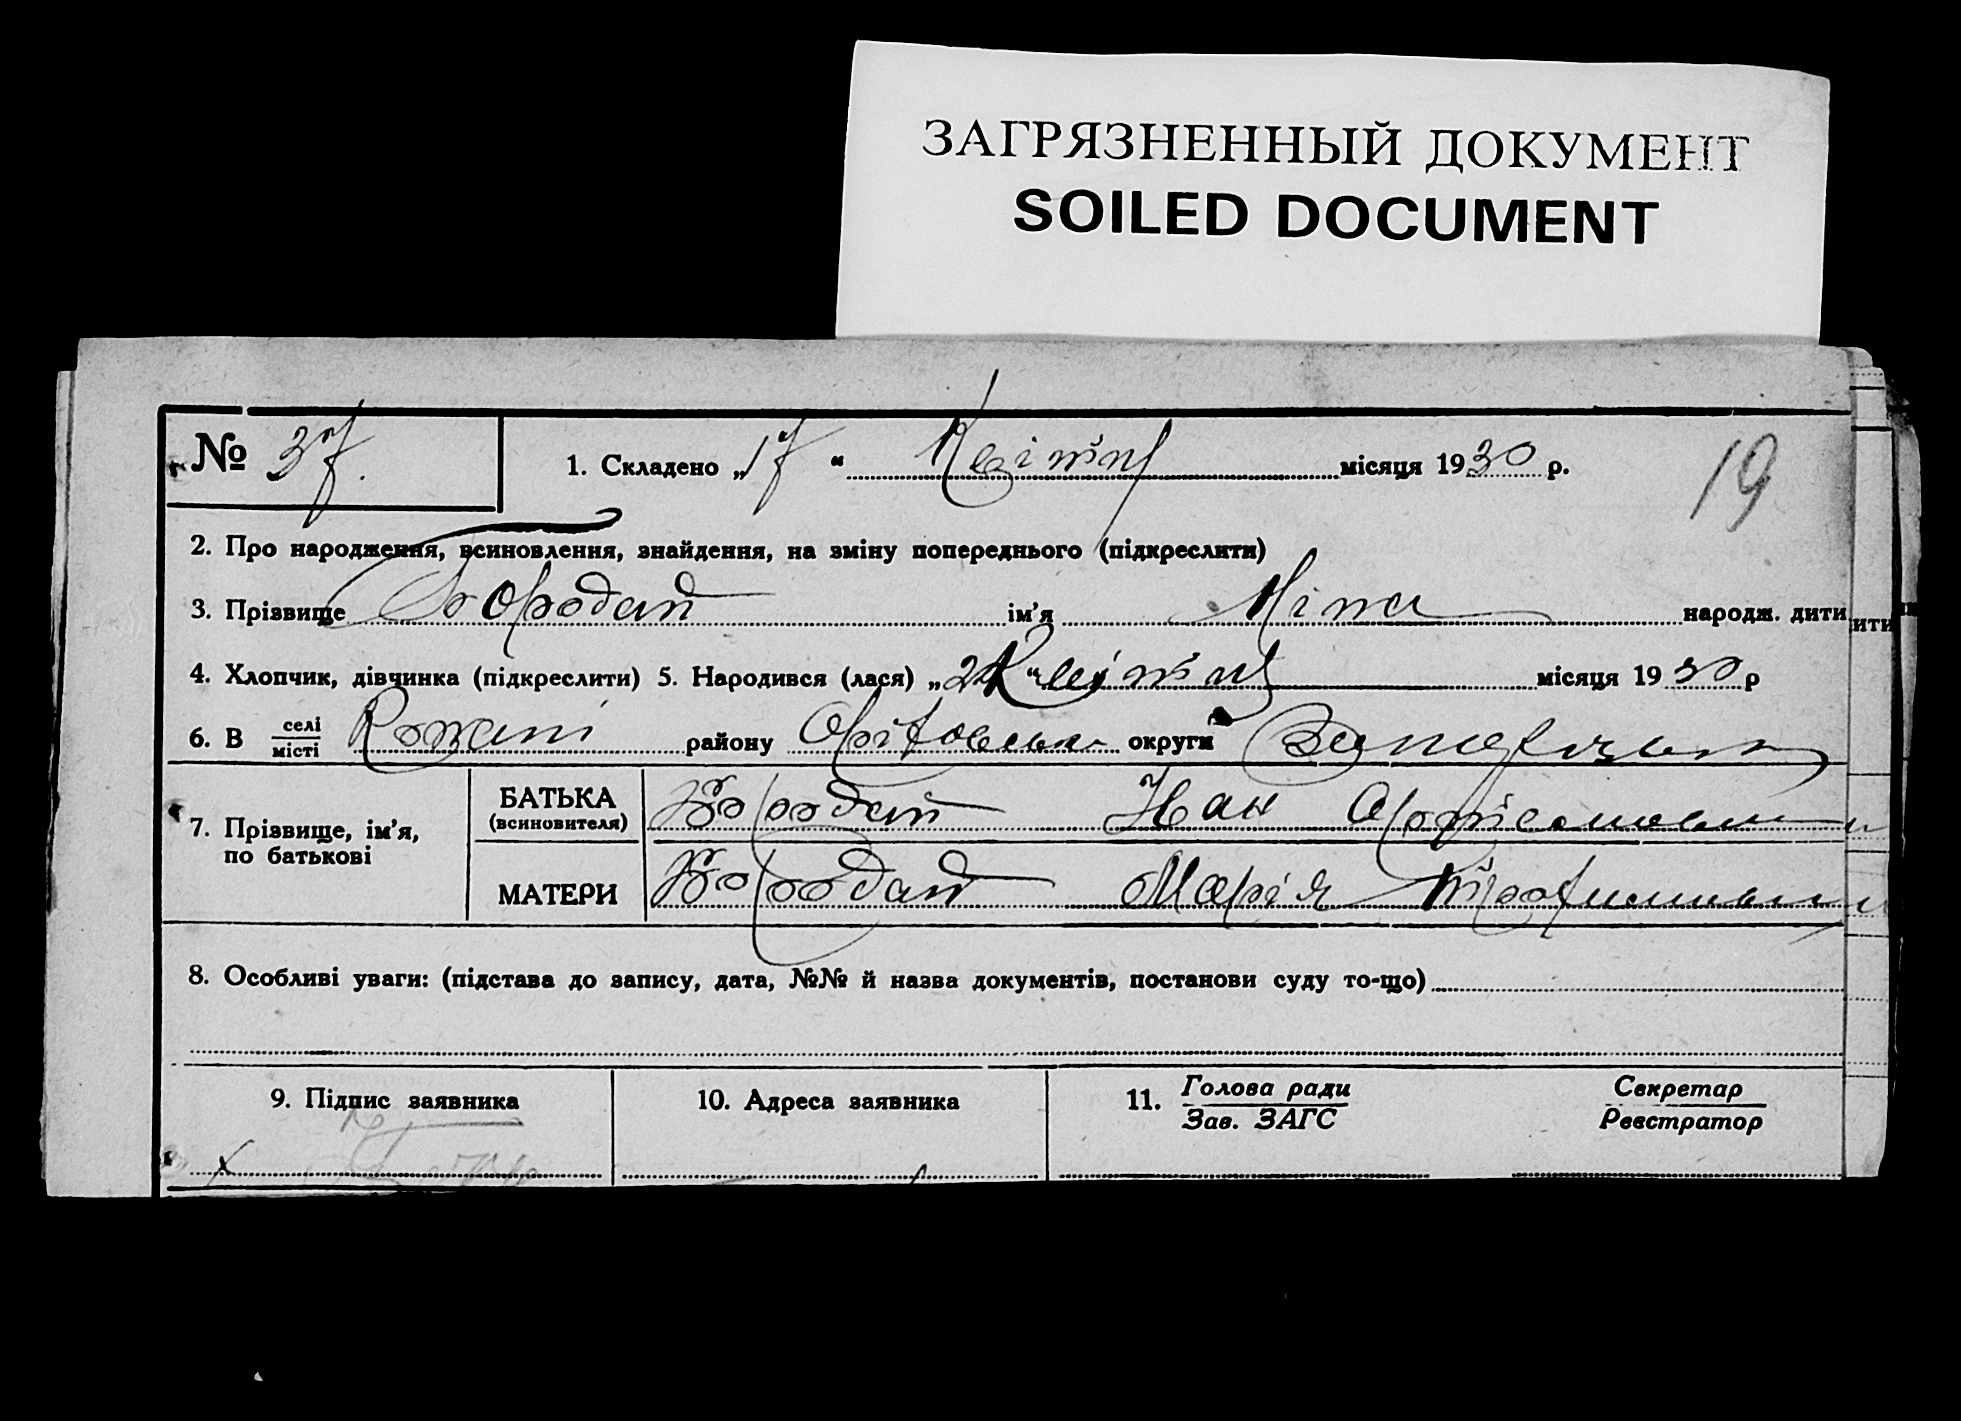 ЗАГРЯЗНЕННЫЙ ДОКУМЕНТ
SOILED DOCUMENT
№ 37. 1. Складено „17“ Квітня місяця 1930 р. 19
2. Про народження, всиновлення, знайдення, на зміну попереднього (підкреслити)
3. Прізвище Бородай ім’я народж. дити
ити
4. Хлопчик, дівчинка (підкреслити) 5. Народився (лася) „2“ Квітня місяця 1930 р
6. В селі місті району округи
7. Прізвище, ім’я, по батькові
БАТЬКА (всиновителя) Бородай Іван
МАТЕРИ Бородай Марія
8. Особливі уваги: (підстава до запису, дата, №№ й назва документів, постанови суду то-що)
9. Підпис заявника 10. Адреса заявника 11. Голова ради Секретар
Зав. ЗАГС Реєстратор
х